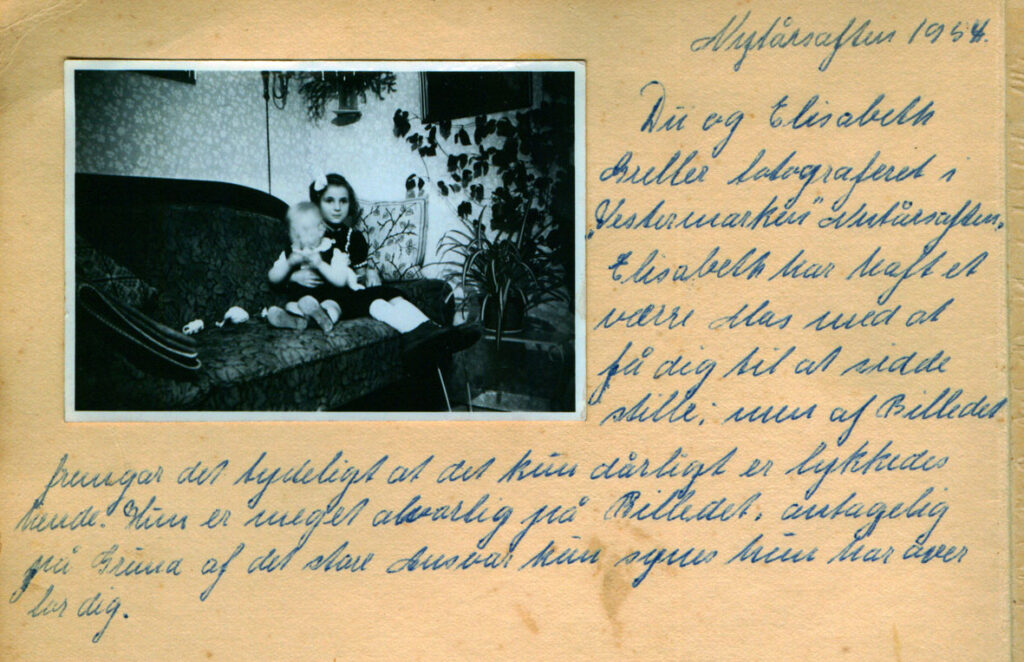 Nytårsaften 1954.
Du og Elisabeth
Greller fotograferet i
"Vestermarken" Nytårsaften.
Elisabeth har haft et
værre Mas med at
få dig til at sidde
stille; men af Billedet
fremgår det tydeligt at det kun dårligt er lykkedes
hende. Hun er meget alvorlig på Billedet, antagelig
på Grund af det store Ansvar hun synes hun har over
for dig.